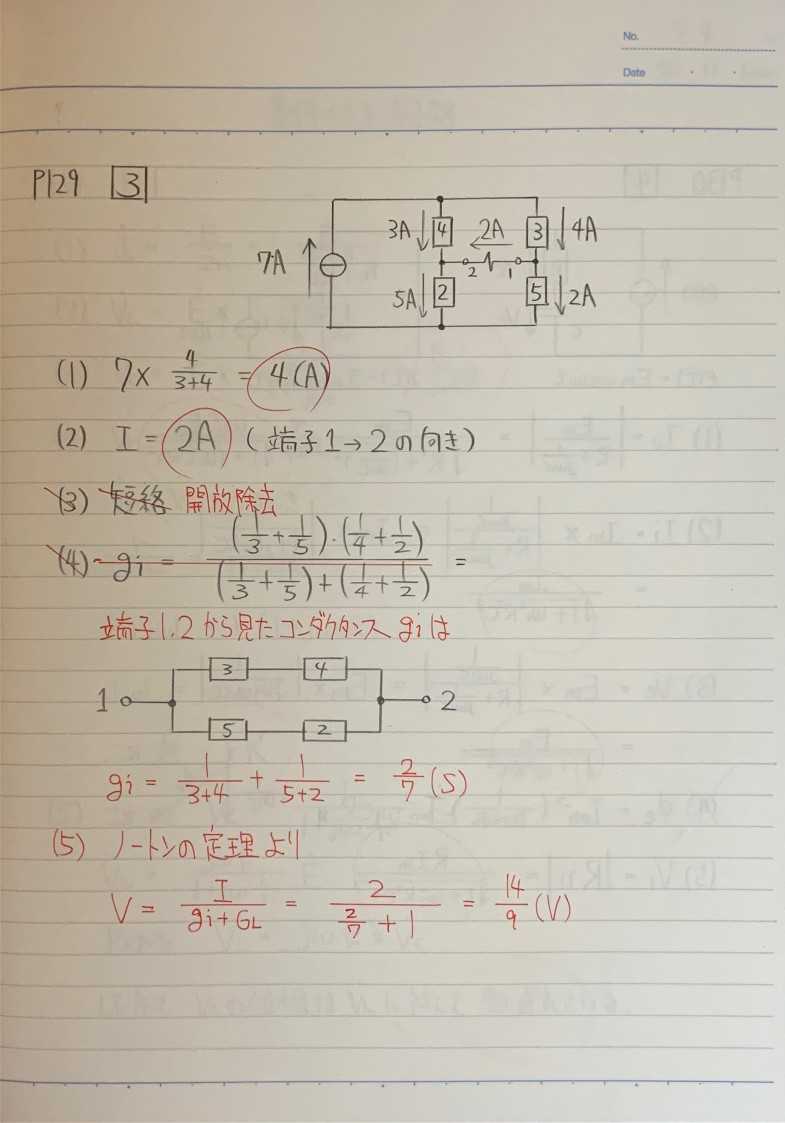 No.
Date
P129 3
7A 3A 4 2A 3 4A
2 1
5A 2 5 2A
(1) 7× 4/(3+4) = 4(A)
(2) I = 2A (端子1→2の向き)
(3) 短絡 開放除去
(4) gi = ((1/3+1/5)・(1/4+1/2))/((1/3+1/5)+(1/4+1/2)) =
端子1.2から見たコンダクタンスgiは
3 4
1 2
5 2
gi = 1/(3+4) + 1/(5+2) = 2/7 (S)
(5) ノートンの定理より
V = I/(gi+GL) = 2/(2/7+1) = 14/9 (V)